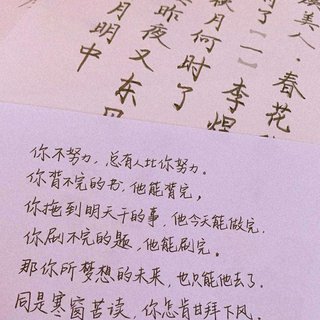 美人·春花
时了【一】李煜
秋月何时了
昨夜又东
月明中
你不努力，总有人比你努力。
你背不完的书，他能背完，
你拖到明天干的事，他今天能做完，
你刷不完的题，他能刷完。
那你所梦想的未来，也只能他去了.
同是寒窗苦读，你怎肯甘拜下风.